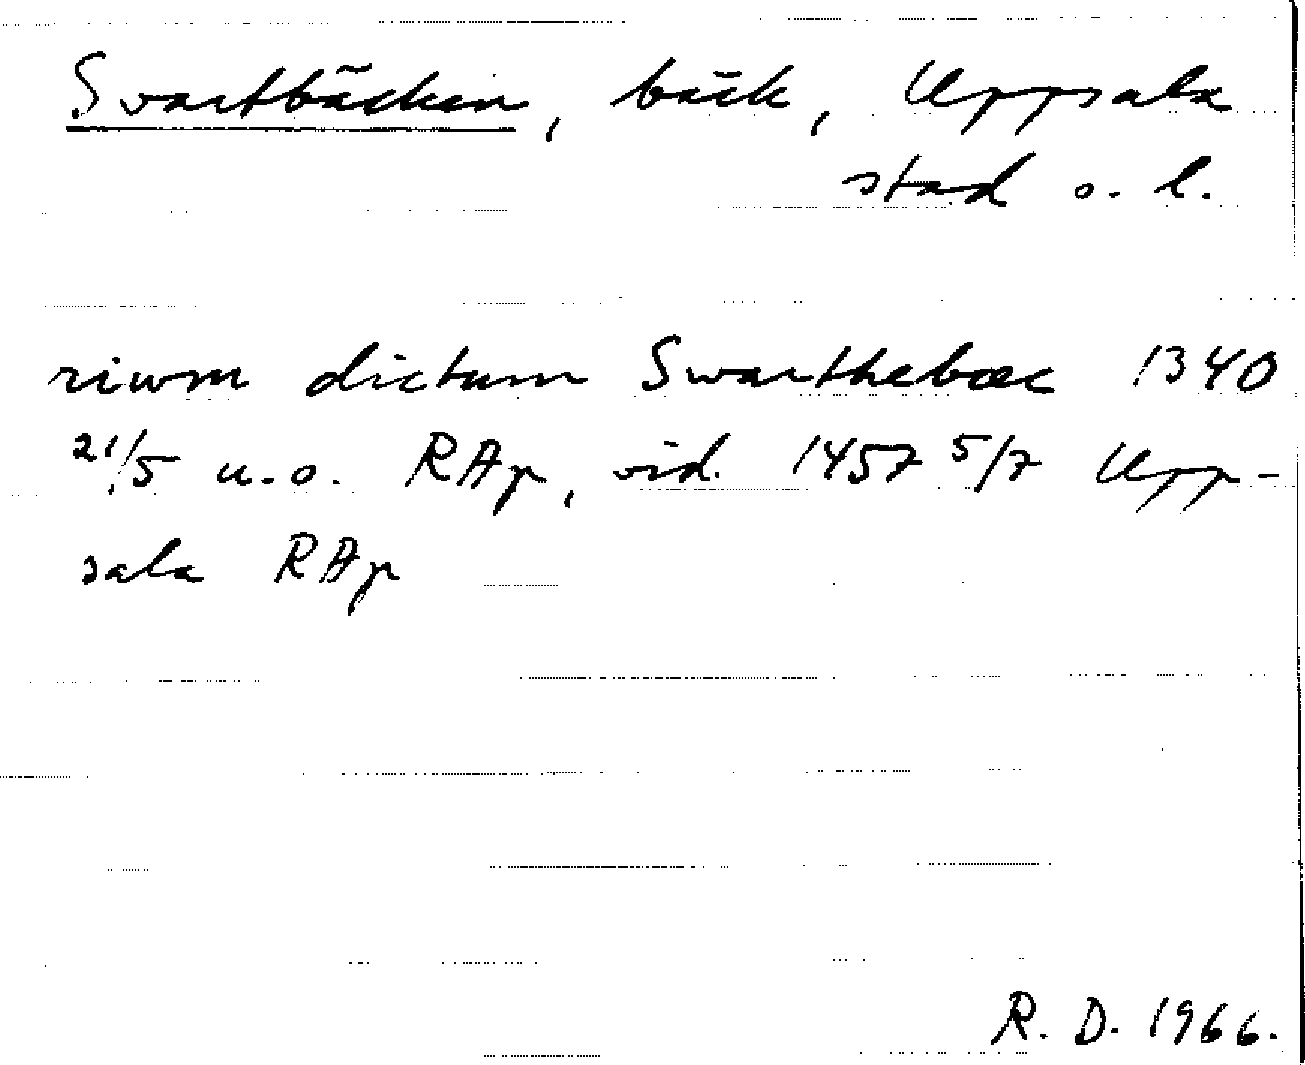 Svartbäcken, bäck, Uppsala
stad o. l.
riwm dictum Swarthebæc 1340
21/5 u.o. RAp, vid. 1457 5/7 Upp-
sala RAp
R. D. 1966.